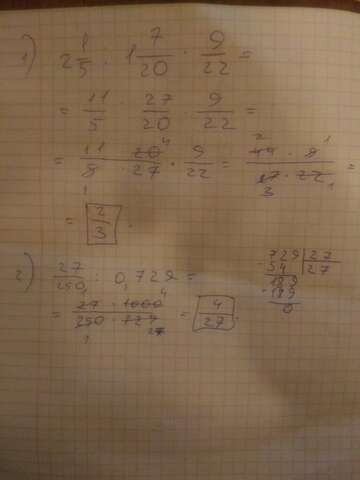 1) 2 1/5 : 1 7/20 · 9/22 =
= 11/5 : 27/20 · 9/22 =
= 11 · 20 4 / 5 1 · 27 · 9/22 = 2 44 · 9 1 / 27 3 · 22 1 =
= 2/3 .
2) 27/250 : 0,729 =
= 27 · 1000 4 / 250 1 · 729 27 = 4/27 .
729 | 27
- 54 | 27
189
- 189
0